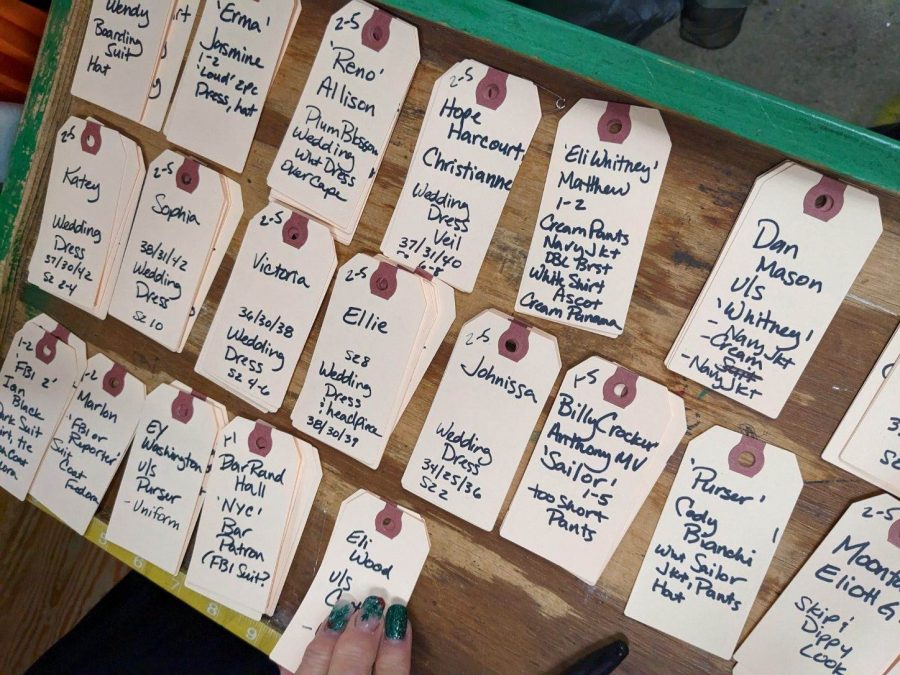 Wendy
Boarding
Suit
Hat
'Erma'
Jasmine
1-2
'Loud' 2pc
Dress, hat
2-5
'Reno'
Allison
Plum Blossom
Wedding
Wht Dress
Over Cape
2-5
Hope
Harcourt
Christianne
Wedding
Dress
Veil
37/31/40
'Eli Whitney'
Matthew
1-2
Cream Pants
Navy Jkt
DBL Brst
White Shirt
Ascot
Cream Panama
Dan
Mason
u/s
'Whitney'
- Navy Jkt
- Cream
- Navy Jkt
2-5
Katey
Wedding
Dress
37/30/42
Sz 2-4
2-5
Sophia
38/31/42
Wedding
Dress
Sz 10
2-5
Victoria
34/30/38
Wedding
Dress
Sz 4-6
2-5
Ellie
Sz 8
Wedding
Dress
: headpiece
38/30/39
2-5
Johnissa
Wedding
Dress
34/25/36
Sz 2
1-5
Billy Crocker
Anthony MV
'Sailor'
1-5
too short
Pants
'Purser'
Cody
Bianchi
Wht Sailor
Jkt, Pants
Hat
2-5
Eliott G
Skip;
Dippy
Look
1-2
'FBI 2'
Ian
Black
Suit
Marlon
'FBI or
Reporter'
Suit
Coat
Fedora
EY
Washington
u/s
Purser
- Uniform
DarRand
Hall
'NYC'
Bar
Patron
(FBI Suit?
Eli
Wood
u/s
6
7
8
9